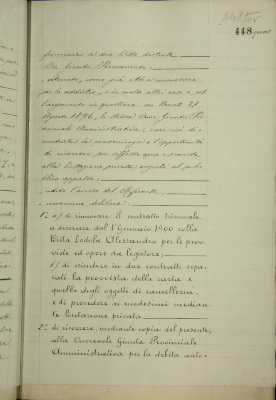 448
fornirne a due Ditte distinte
La Giunta Permanente
ritenuto, come già ebbe a riconoscere
per lo addietro, e in molti altri casi e, sul
l'argomento in questione, in Decreti 28
Agosto 1896, la stessa Onor. Giunta Pro
vinciale Amministrativa, essersi di
mostrata la convenienza e l'opportunità
di ricorrere per siffatte opere e provviste
alla licitazione privata, anziché al pub
blico appalto
udito l'avviso del Referente,
unanime delibera:
1º a) di rinnovare il contratto triennale
a decorrere dal 1º Gennaio 1900 colla
Ditta Lodola Alessandro per le prov
viste ed opere da legatore;
b) di scindere in due contratti sepa
rati la provvista della carta e
quella degli oggetti di cancelleria,
e di procedere ai medesimi median
te licitazione privata
2º di ricorrere, mediante copia del presente,
alla Onorevole Giunta Provinciale
Amministrativa per la debita auto=